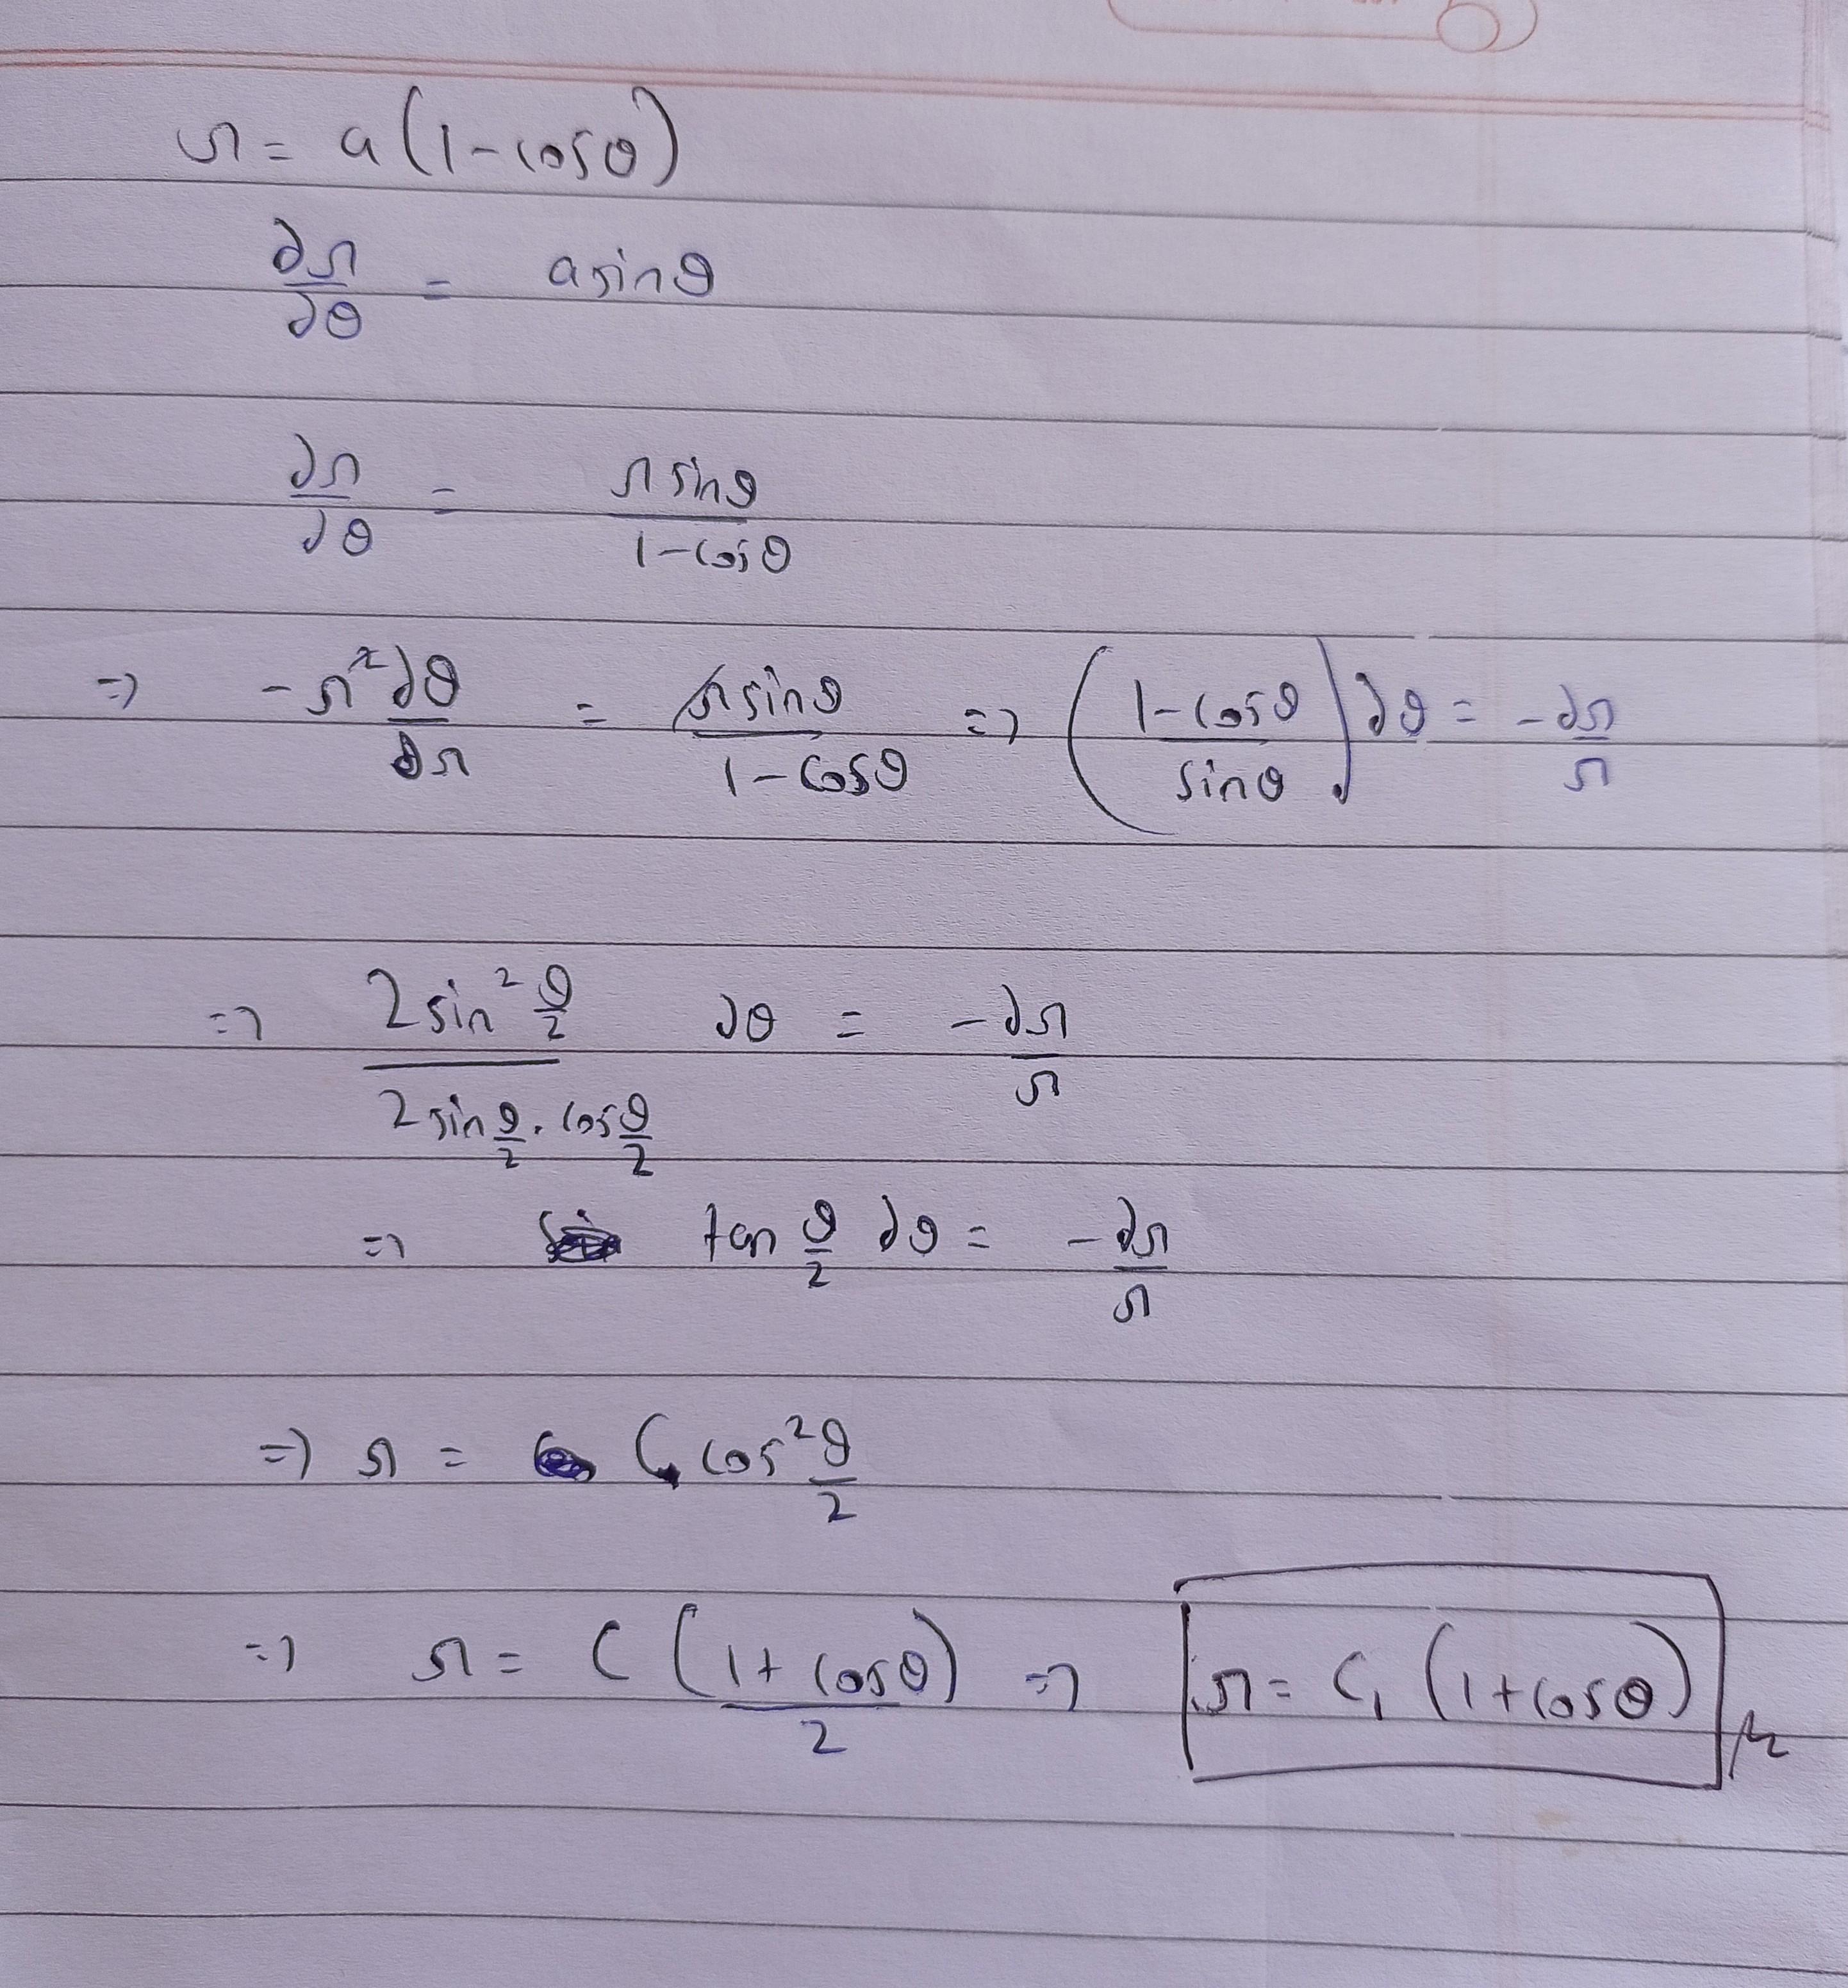 r = a(1-cosθ)
∂r/∂θ = a sinθ
∂r/∂θ = r sinθ/(1-cosθ)
=> -r² ∂θ/∂r = r sinθ/(1-cosθ) => ((1-cosθ)/sinθ) ∂θ = -∂r/r
=> (2 sin² θ/2)/(2 sin θ/2 . cos θ/2) ∂θ = -∂r/r
=> tan θ/2 ∂θ = -∂r/r
=> r = C cos² θ/2
=> r = C ((1+cosθ)/2) => r = C₁ (1+cosθ)